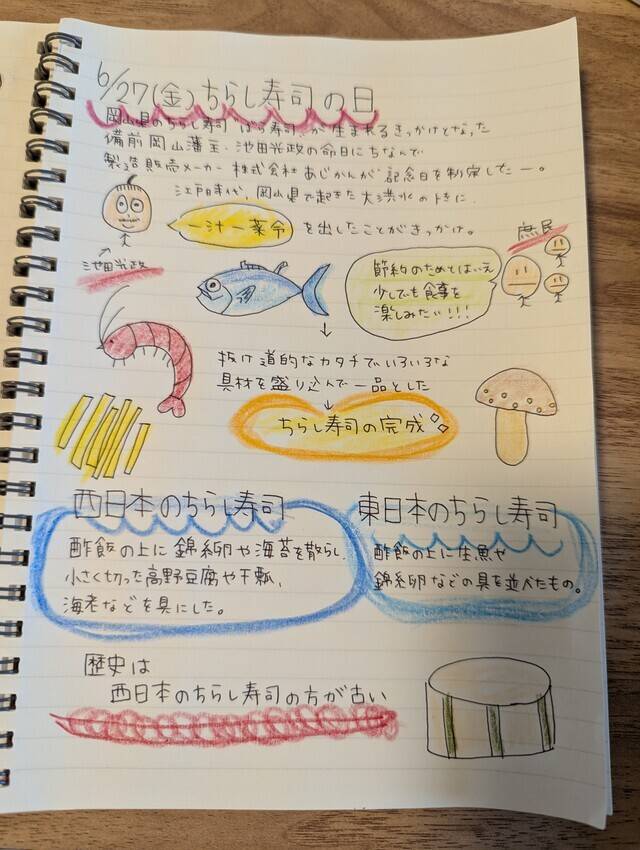 6/27(金)ちらし寿司の日
岡山県のちらし寿司「ばら寿司」が生まれるきっかけとなった
備前岡山藩主・池田光政の命日にちなんで
製造販売メーカー 株式会社 あじかんが 記念日を制定したー。
江戸時代、岡山県で起きた大洪水のときに、
一汁一菜令 を出したことがきっかけ。
池田光政
庶民
節約のためとはいえ
少しでも食事を
楽しみたい!!!
↓
抜け道的なカタチでいろいろな
具材を盛り込んで一品とした
↓
ちらし寿司の完成
西日本のちらし寿司
酢飯の上に錦糸卵や海苔を散らし、
小さく切った高野豆腐や干瓢、
海老などを具にした。
東日本のちらし寿司
酢飯の上に生魚や
錦糸卵などの具を並べたもの。
歴史は
西日本のちらし寿司の方が古い